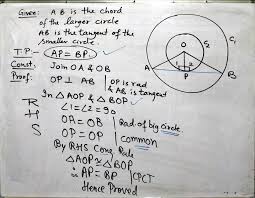 Given: AB is the chord
of the larger circle
AB is the tangent of the
smaller circle.
T.P:- AP = BP
Const. Join OA & OB
Proof: OP ⊥ AB | OP is rad
& AB is tangent
In △AOP & △BOP
R ∠1 = ∠2 = 90
H OA = OB | Rad of big circle.
S OP = OP | common
By RHS Cong Rule
△AOP ≅ △BOP
∴ AP = BP | CPCT
Hence Proved
O
S
C₁
1 2
A P B